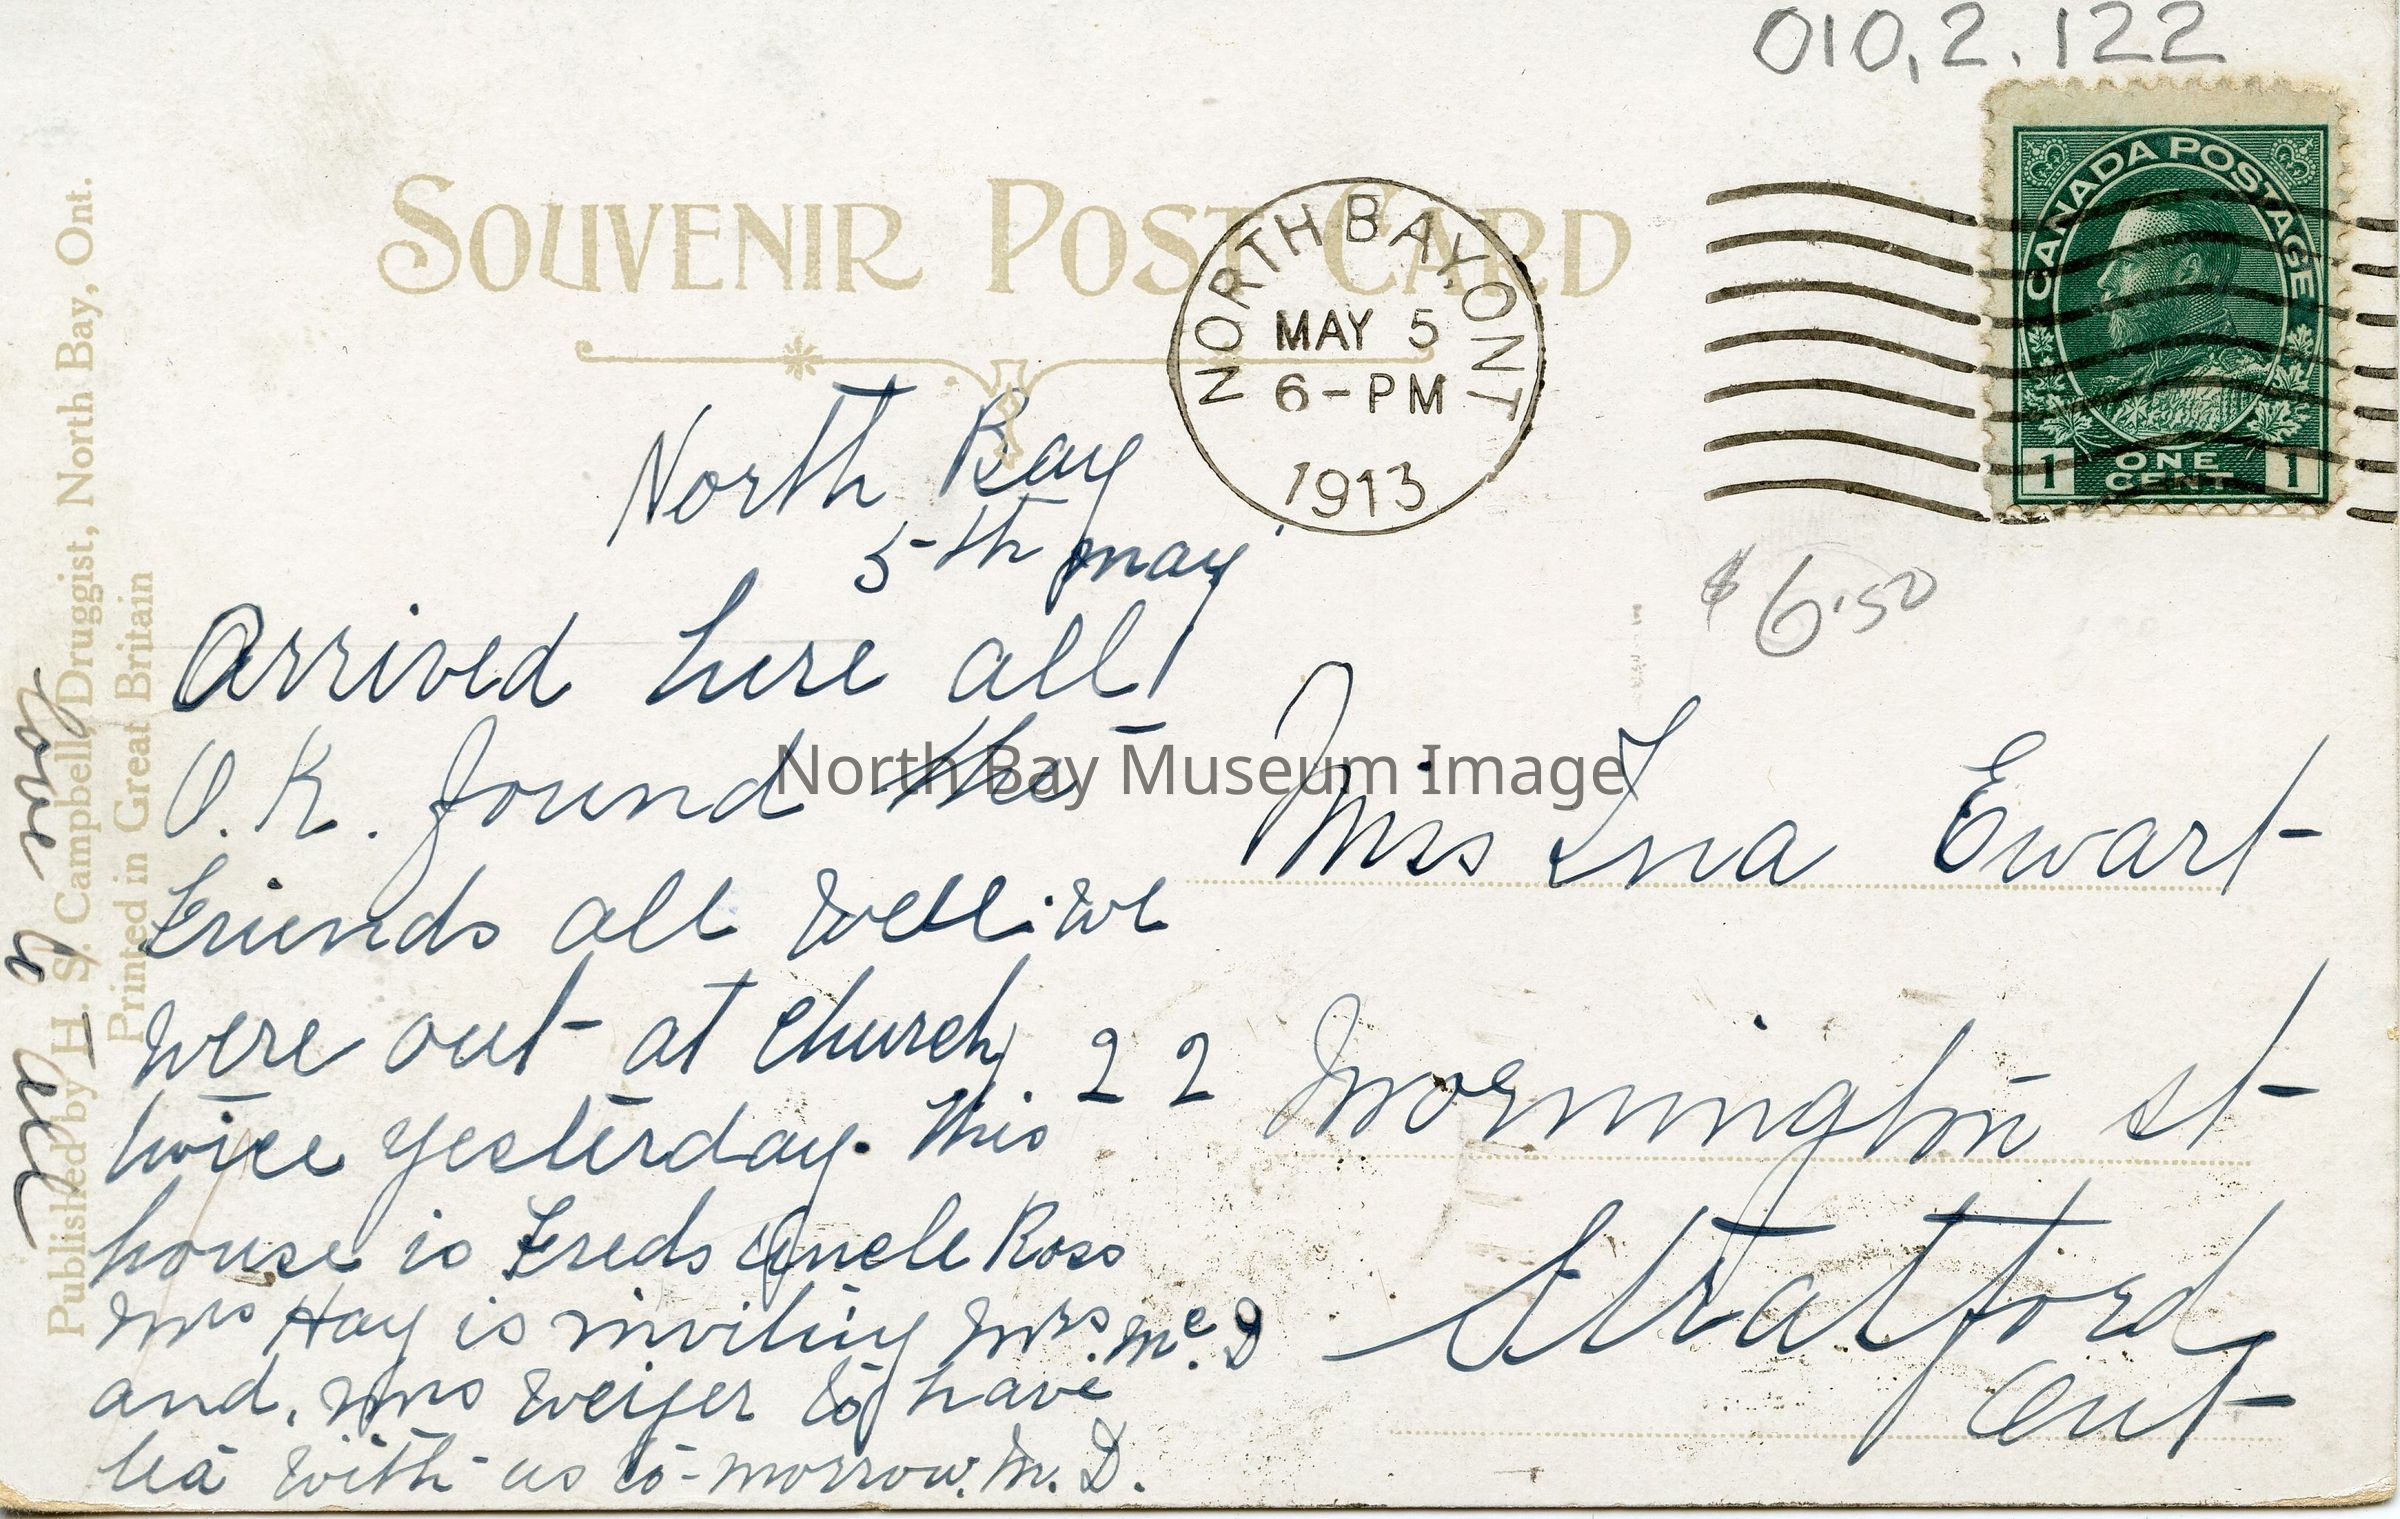 010.2.122
SOUVENIR POST CARD
CANADA POSTAGE
1 ONE CENT 1
NORTH BAY, ONT
MAY 5
6-PM
1913
$6.50
North Bay
5th may
Arrived here all
O.K. found the
Friends all well: we
were out at church
twice yesterday. This
house is Freds Uncle Ross
Mrs Hay is inviting Mrs. Mc. D
and, Mrs Weijer to have
tea with us to-morrow. M. D.
Love to all
Miss Ina Ewart
22 Mornington st
Stratford
Ont
Published by H. S. Campbell, Druggist, North Bay, Ont.
Printed in Great Britain
North Bay Museum Image